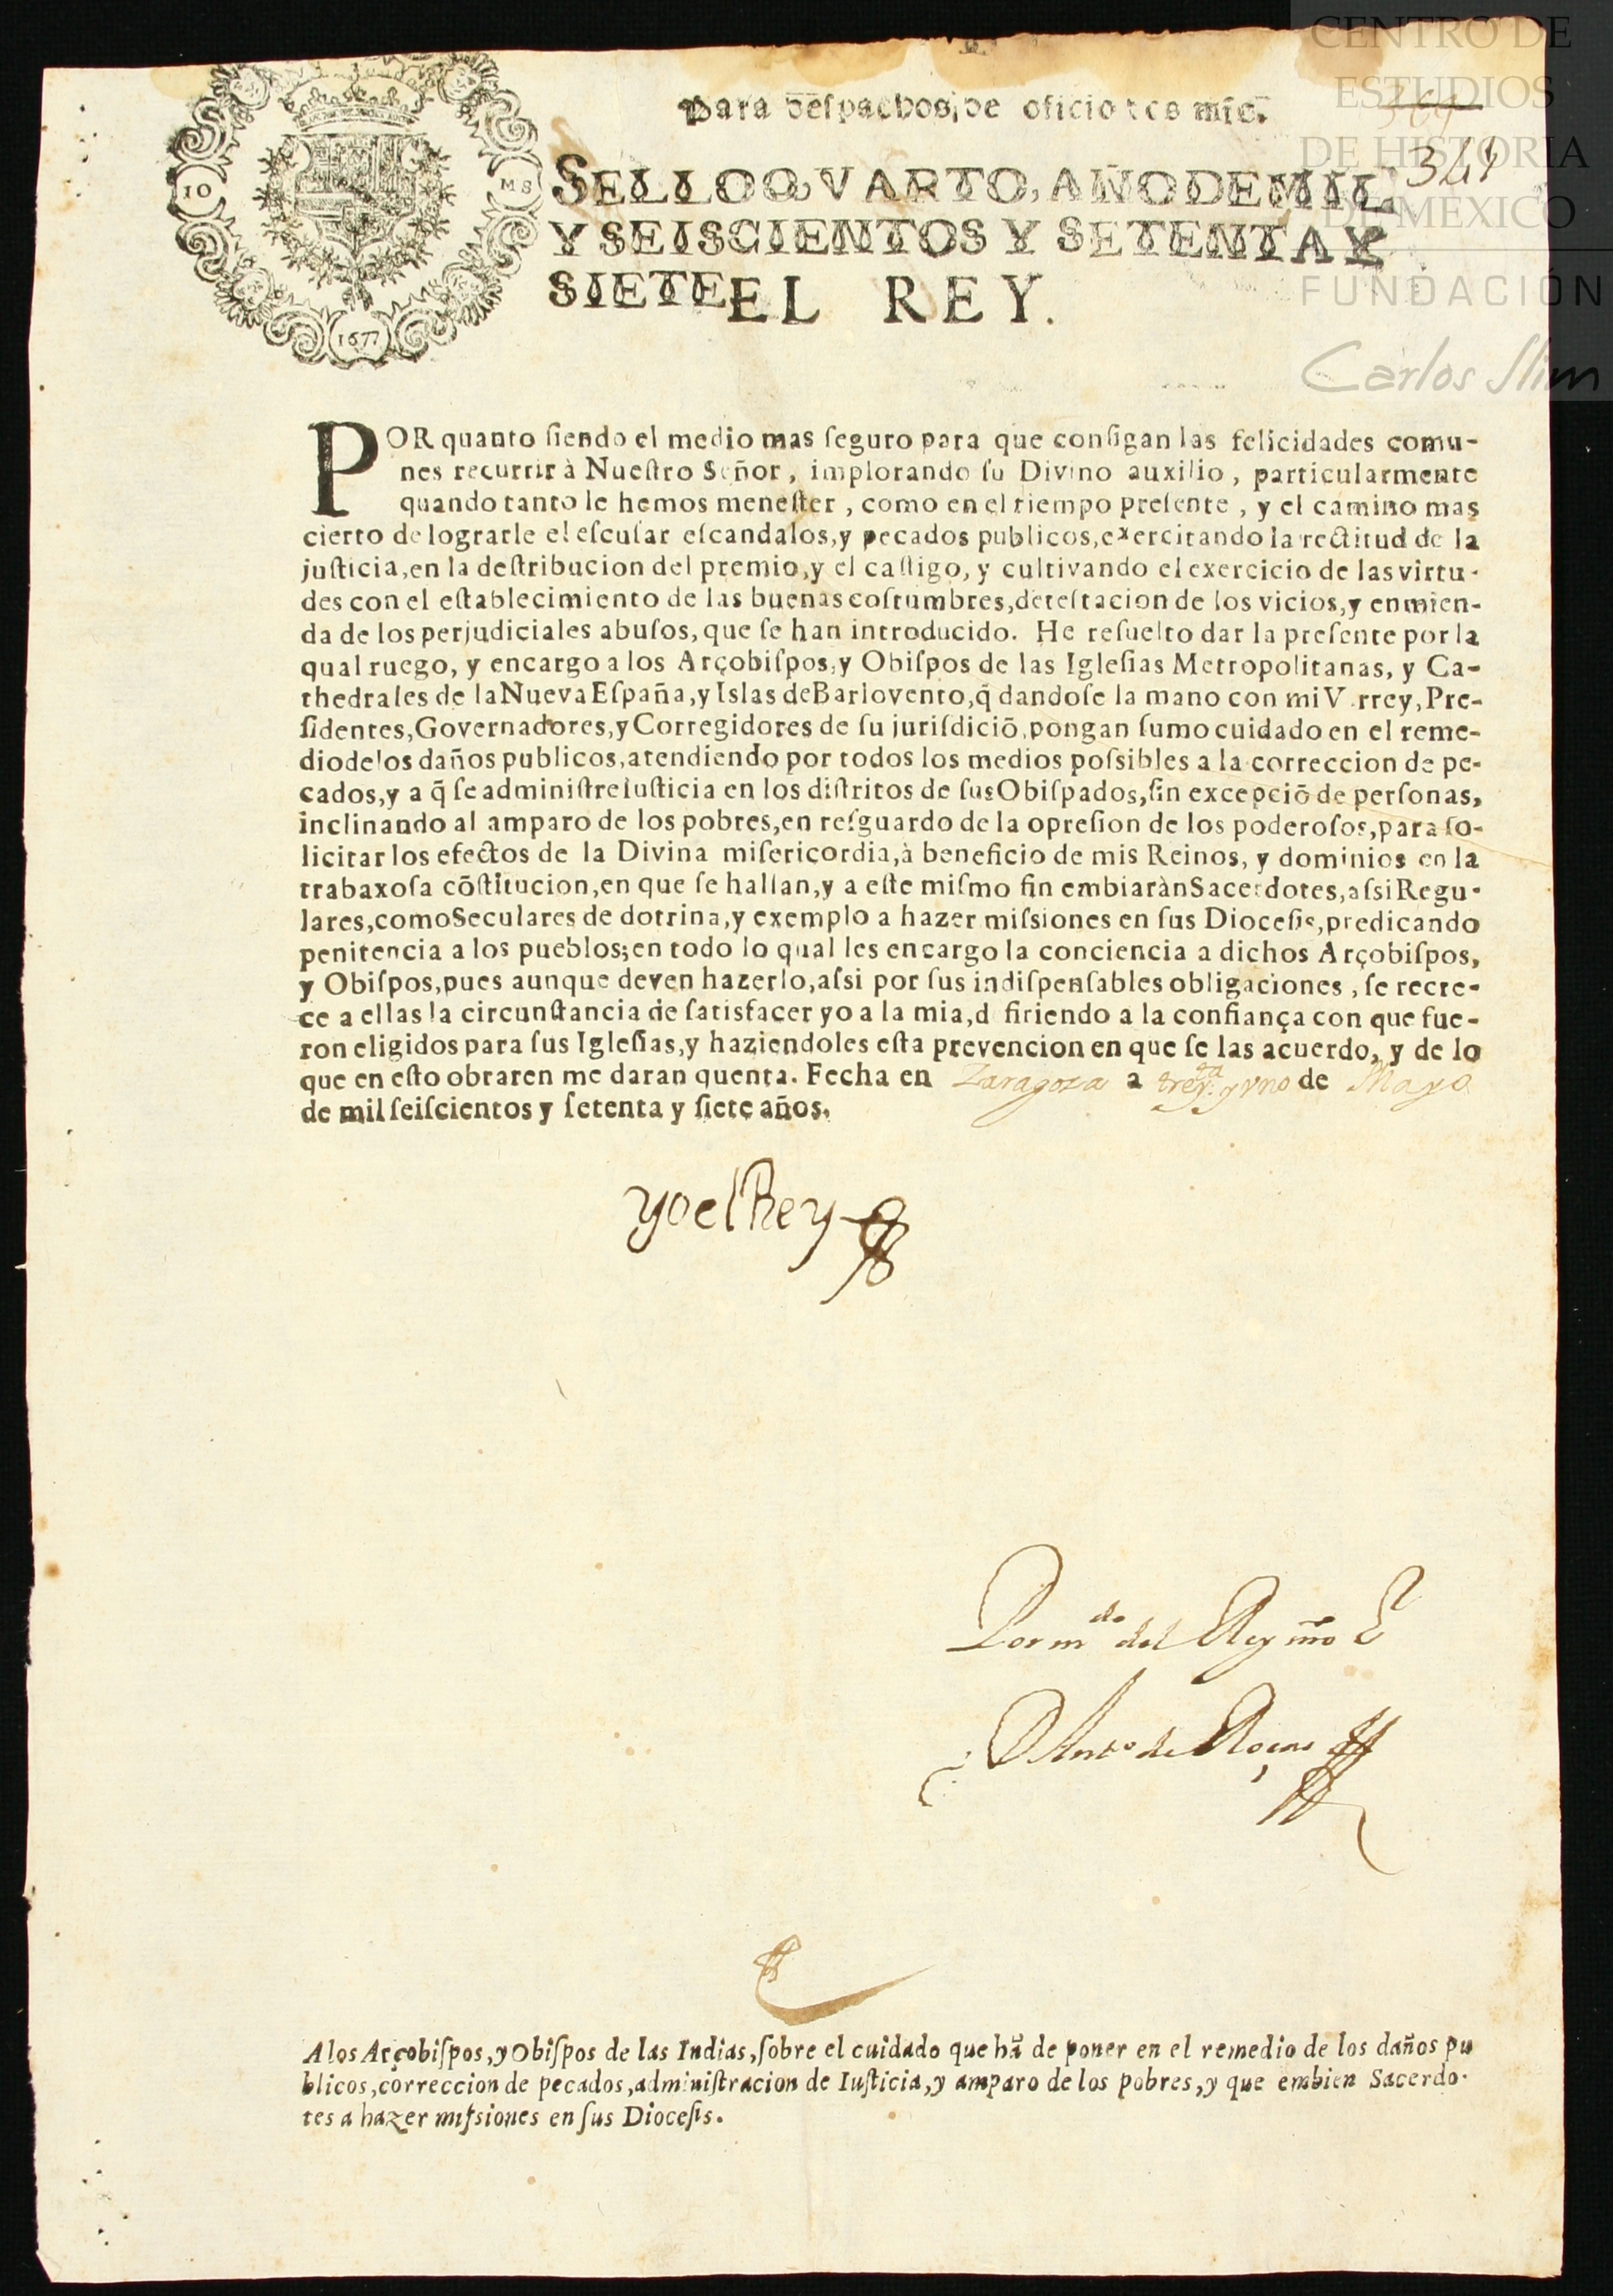 CENTRO DE
ESTUDIOS
DE HISTORIA
DE MÉXICO
FUNDACIÓN
Carlos Slim
Para deſpachos de oficio dos mrs.
321
10
MS
SELLO QVARTO, AÑO DE MIL
Y SEISCIENTOS Y SETENTA Y
SIETE
1677
EL REY.
POR quanto ſiendo el medio mas ſeguro para que conſigan las felicidades comu-
nes recurrir à Nueſtro Señor, implorando ſu Divino auxilio, particularmente
quando tanto le hemos meneſter, como en el tiempo preſente, y el camino mas
cierto de lograrle el eſcuſar eſcandalos, y pecados publicos, exercitando la rectitud de la
juſticia, en la deſtribucion del premio, y el caſtigo, y cultivando el exercicio de las virtu-
des con el eſtablecimiento de las buenas coſtumbres, deteſtacion de los vicios, y enmien-
da de los perjudiciales abuſos, que ſe han introducido. He reſuelto dar la preſente por la
qual ruego, y encargo a los Arçobiſpos, y Obiſpos de las Igleſias Metropolitanas, y Ca-
thedrales de la Nueva Eſpaña, y Islas de Barlovento, q̃ dandoſe la mano con mi V rrey, Pre-
ſidentes, Governadores, y Corregidores de ſu juriſdiciõ, pongan ſumo cuidado en el reme-
dio de los daños publicos, atendiendo por todos los medios poſsibles a la correccion de pe-
cados, y a q̃ ſe adminiſtre Iuſticia en los diſtritos de ſus Obiſpados, ſin excepciõ de perſonas,
inclinando al amparo de los pobres, en reſguardo de la opreſion de los poderoſos, para ſo-
licitar los efectos de la Divina miſericordia, à beneficio de mis Reinos, y dominios en la
trabaxoſa cõſtitucion, en que ſe hallan, y a eſte miſmo fin embiaràn Sacerdotes, aſsi Regu-
lares, como Seculares de dotrina, y exemplo a hazer miſsiones en ſus Dioceſis, predicando
penitencia a los pueblos; en todo lo qual les encargo la conciencia a dichos Arçobiſpos,
y Obiſpos, pues aunque deven hazerlo, aſsi por ſus indiſpenſables obligaciones, ſe recre-
ce a ellas la circunſtancia de ſatisfacer yo a la mia, d firiendo a la confiança con que fue-
ron eligidos para ſus Igleſias, y haziendoles eſta prevencion en que ſe las acuerdo, y de lo
que en eſto obraren me daran quenta. Fecha en Zaragoza a trey.ta y vno de Mayo
de mil ſeiſcientos y ſetenta y ſiete años.
yo el Rey
Por mdo del Rey nro S
D Anto de Roças
A los Arçobiſpos, y Obiſpos de las Indias, ſobre el cuidado que hã de poner en el remedio de los daños pu
blicos, correccion de pecados, adminiſtracion de Iuſticia, y amparo de los pobres, y que embien Sacerdo-
tes a hazer miſsiones en ſus Dioceſis.